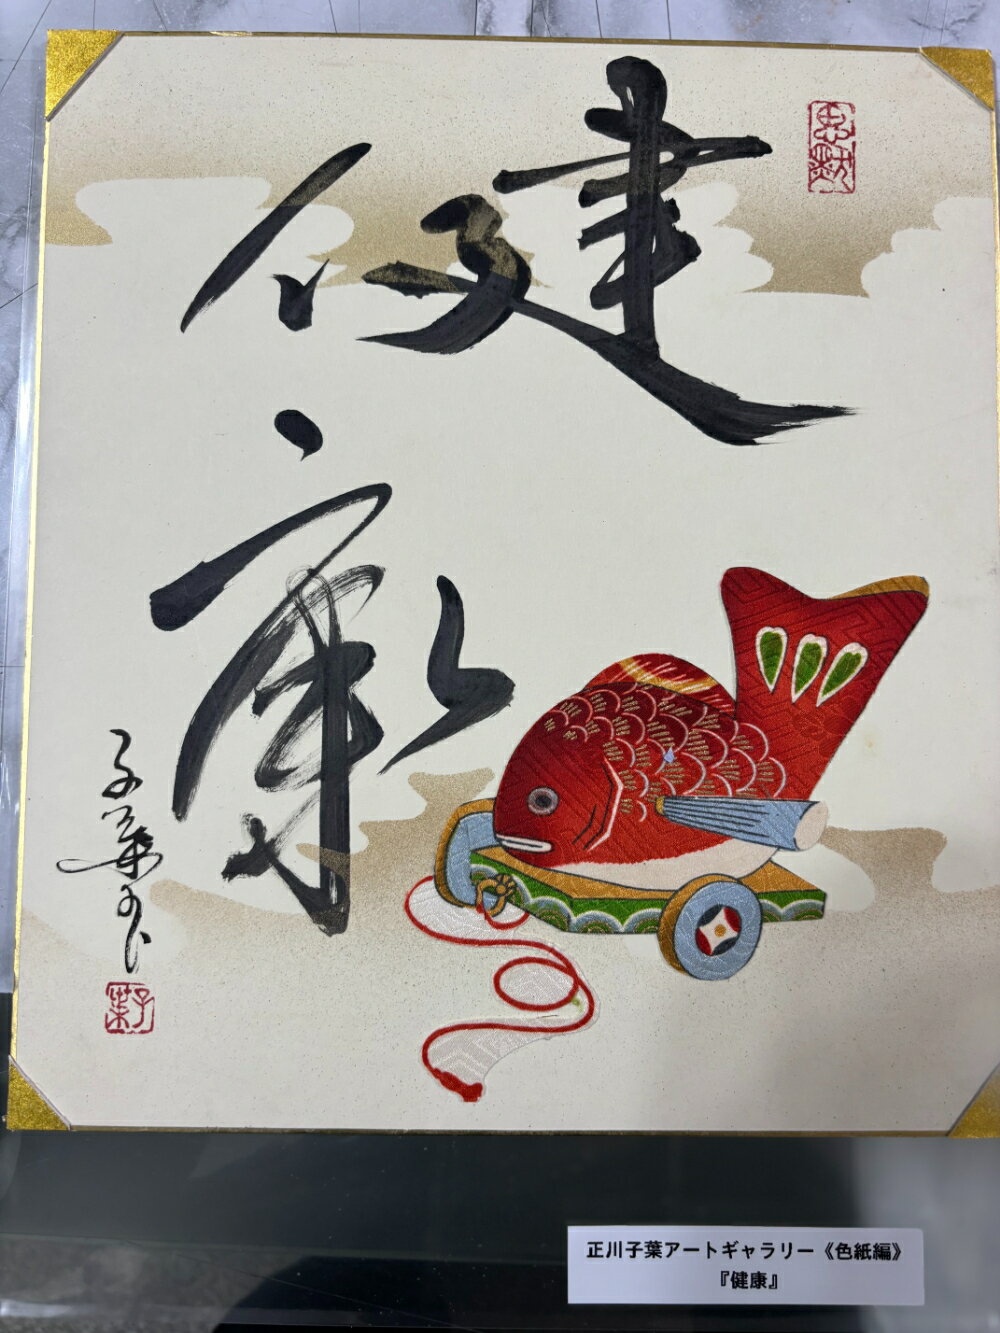 健
康
子葉かく
子葉
正川子葉アートギャラリー《色紙編》
『健康』